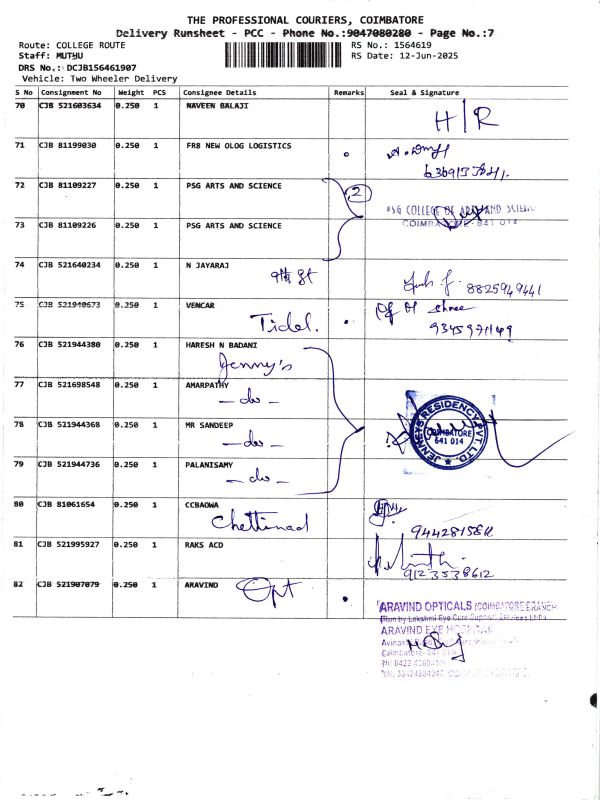 THE PROFESSIONAL COURIERS, COIMBATORE
Delivery Runsheet - PCC - Phone No.:9047080280 - Page No.:7
Route: COLLEGE ROUTE RS No.: 1564619
Staff: MUTHU RS Date: 12-Jun-2025
DRS No.: DCJB156461907
Vehicle: Two Wheeler Delivery
S No Consignment No Weight PCS Consignee Details Remarks Seal & Signature
70 CJB 521603634 0.250 1 NAVEEN BALAJI H/R
71 CJB 81199030 0.250 1 FR8 NEW OLOG LOGISTICS
72 CJB 81109227 0.250 1 PSG ARTS AND SCIENCE 2
PSG COLLEGE OF ARTS AND SCIENCE
COIMBATORE-641 014
73 CJB 81109226 0.250 1 PSG ARTS AND SCIENCE
74 CJB 521640234 0.250 1 N JAYARAJ
9th St 8825949441
75 CJB 521940673 0.250 1 VENCAR
Tidel. 9345971149
76 CJB 521944380 0.250 1 HARESH N BADANI
Jenny's
77 CJB 521698548 0.250 1 AMARPATHY
- do -
78 CJB 521944368 0.250 1 MR SANDEEP
- do -
JENNEYS RESIDENCY PVT. LTD.
COIMBATORE
641 014
79 CJB 521944736 0.250 1 PALANISAMY
- do -
80 CJB 81061654 0.250 1 CCBAOWA
Chettinad
81 CJB 521995927 0.250 1 RAKS ACD
9123538612
82 CJB 521907079 0.250 1 ARAVIND Opt
ARAVIND OPTICALS (COIMBATORE BRANCH)
ARAVIND EYE HOSPITAL